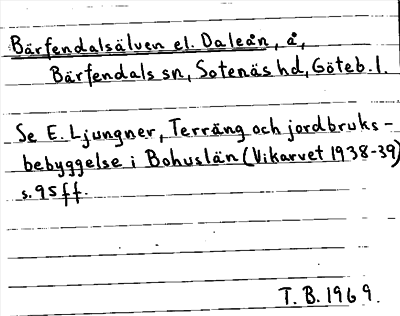 Bärfendalsälven el. Daleån, å,
Bärfendals sn, Sotenäs hd, Göteb. l.
Se E. Ljungner, Terräng och jordbruks-
bebyggelse i Bohuslän (Vikarvet 1938-39)
s. 95 ff.
T. B. 1969.